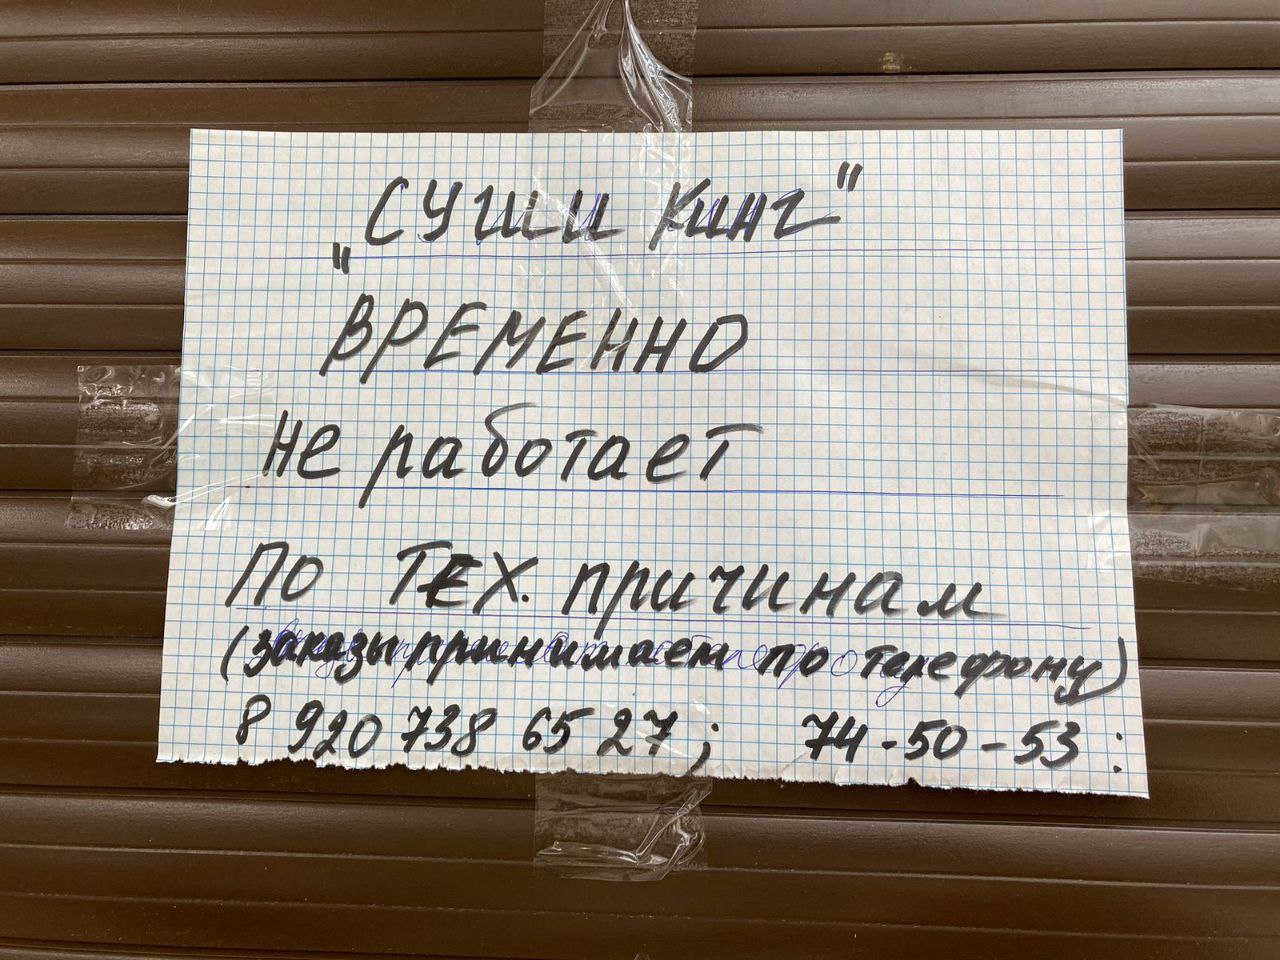 „Суши Кинг"
ВРЕМЕННО
не работает
По ТЕХ. причинам
(заказы принимаем по телефону)
8 920 738 65 27; 74-50-53: